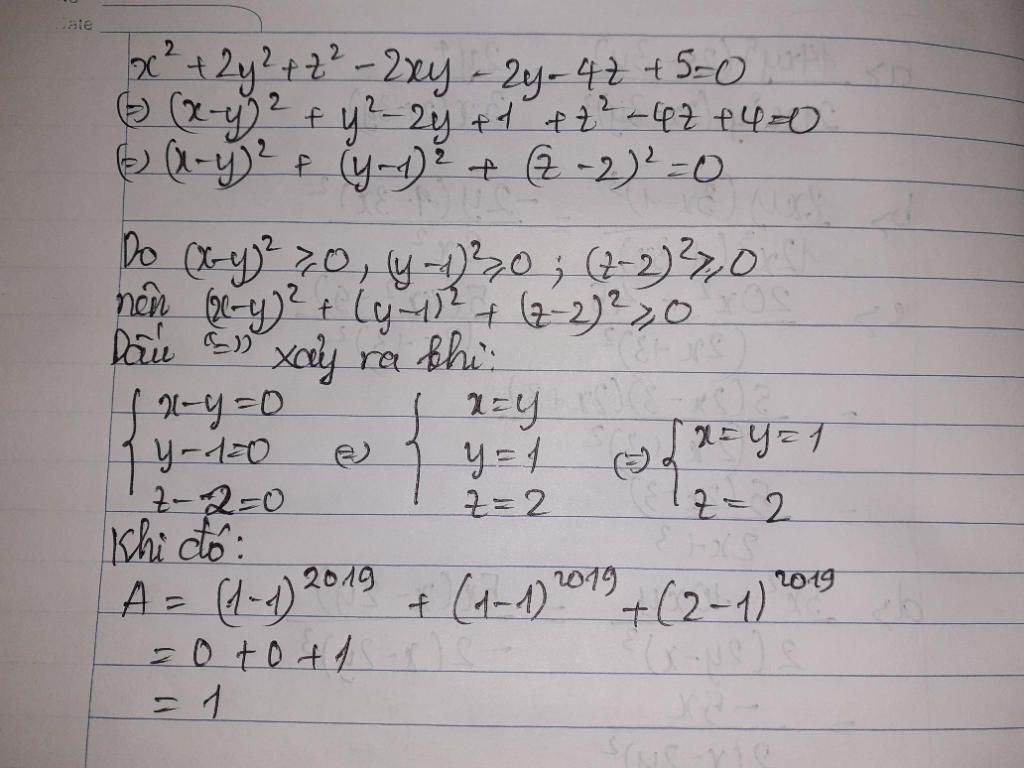 Date
x² + 2y² + z² - 2xy - 2y - 4z + 5 = 0
(=) (x-y)² + y² - 2y + 1 + z² - 4z + 4 = 0
(=) (x-y)² + (y-1)² + (z-2)² = 0
Do (x-y)² ⩾ 0, (y-1)² ⩾ 0 ; (z-2)² ⩾ 0
nên (x-y)² + (y-1)² + (z-2)² ⩾ 0
Dấu "=" xảy ra khi:
{ x-y=0 { x=y
y-1=0 (=) y=1 (=) { x=y=1
z-2=0 z=2 z=2
Khi đó:
A = (1-1)²⁰¹⁹ + (1-1)²⁰¹⁹ + (2-1)²⁰¹⁹
= 0 + 0 + 1
= 1